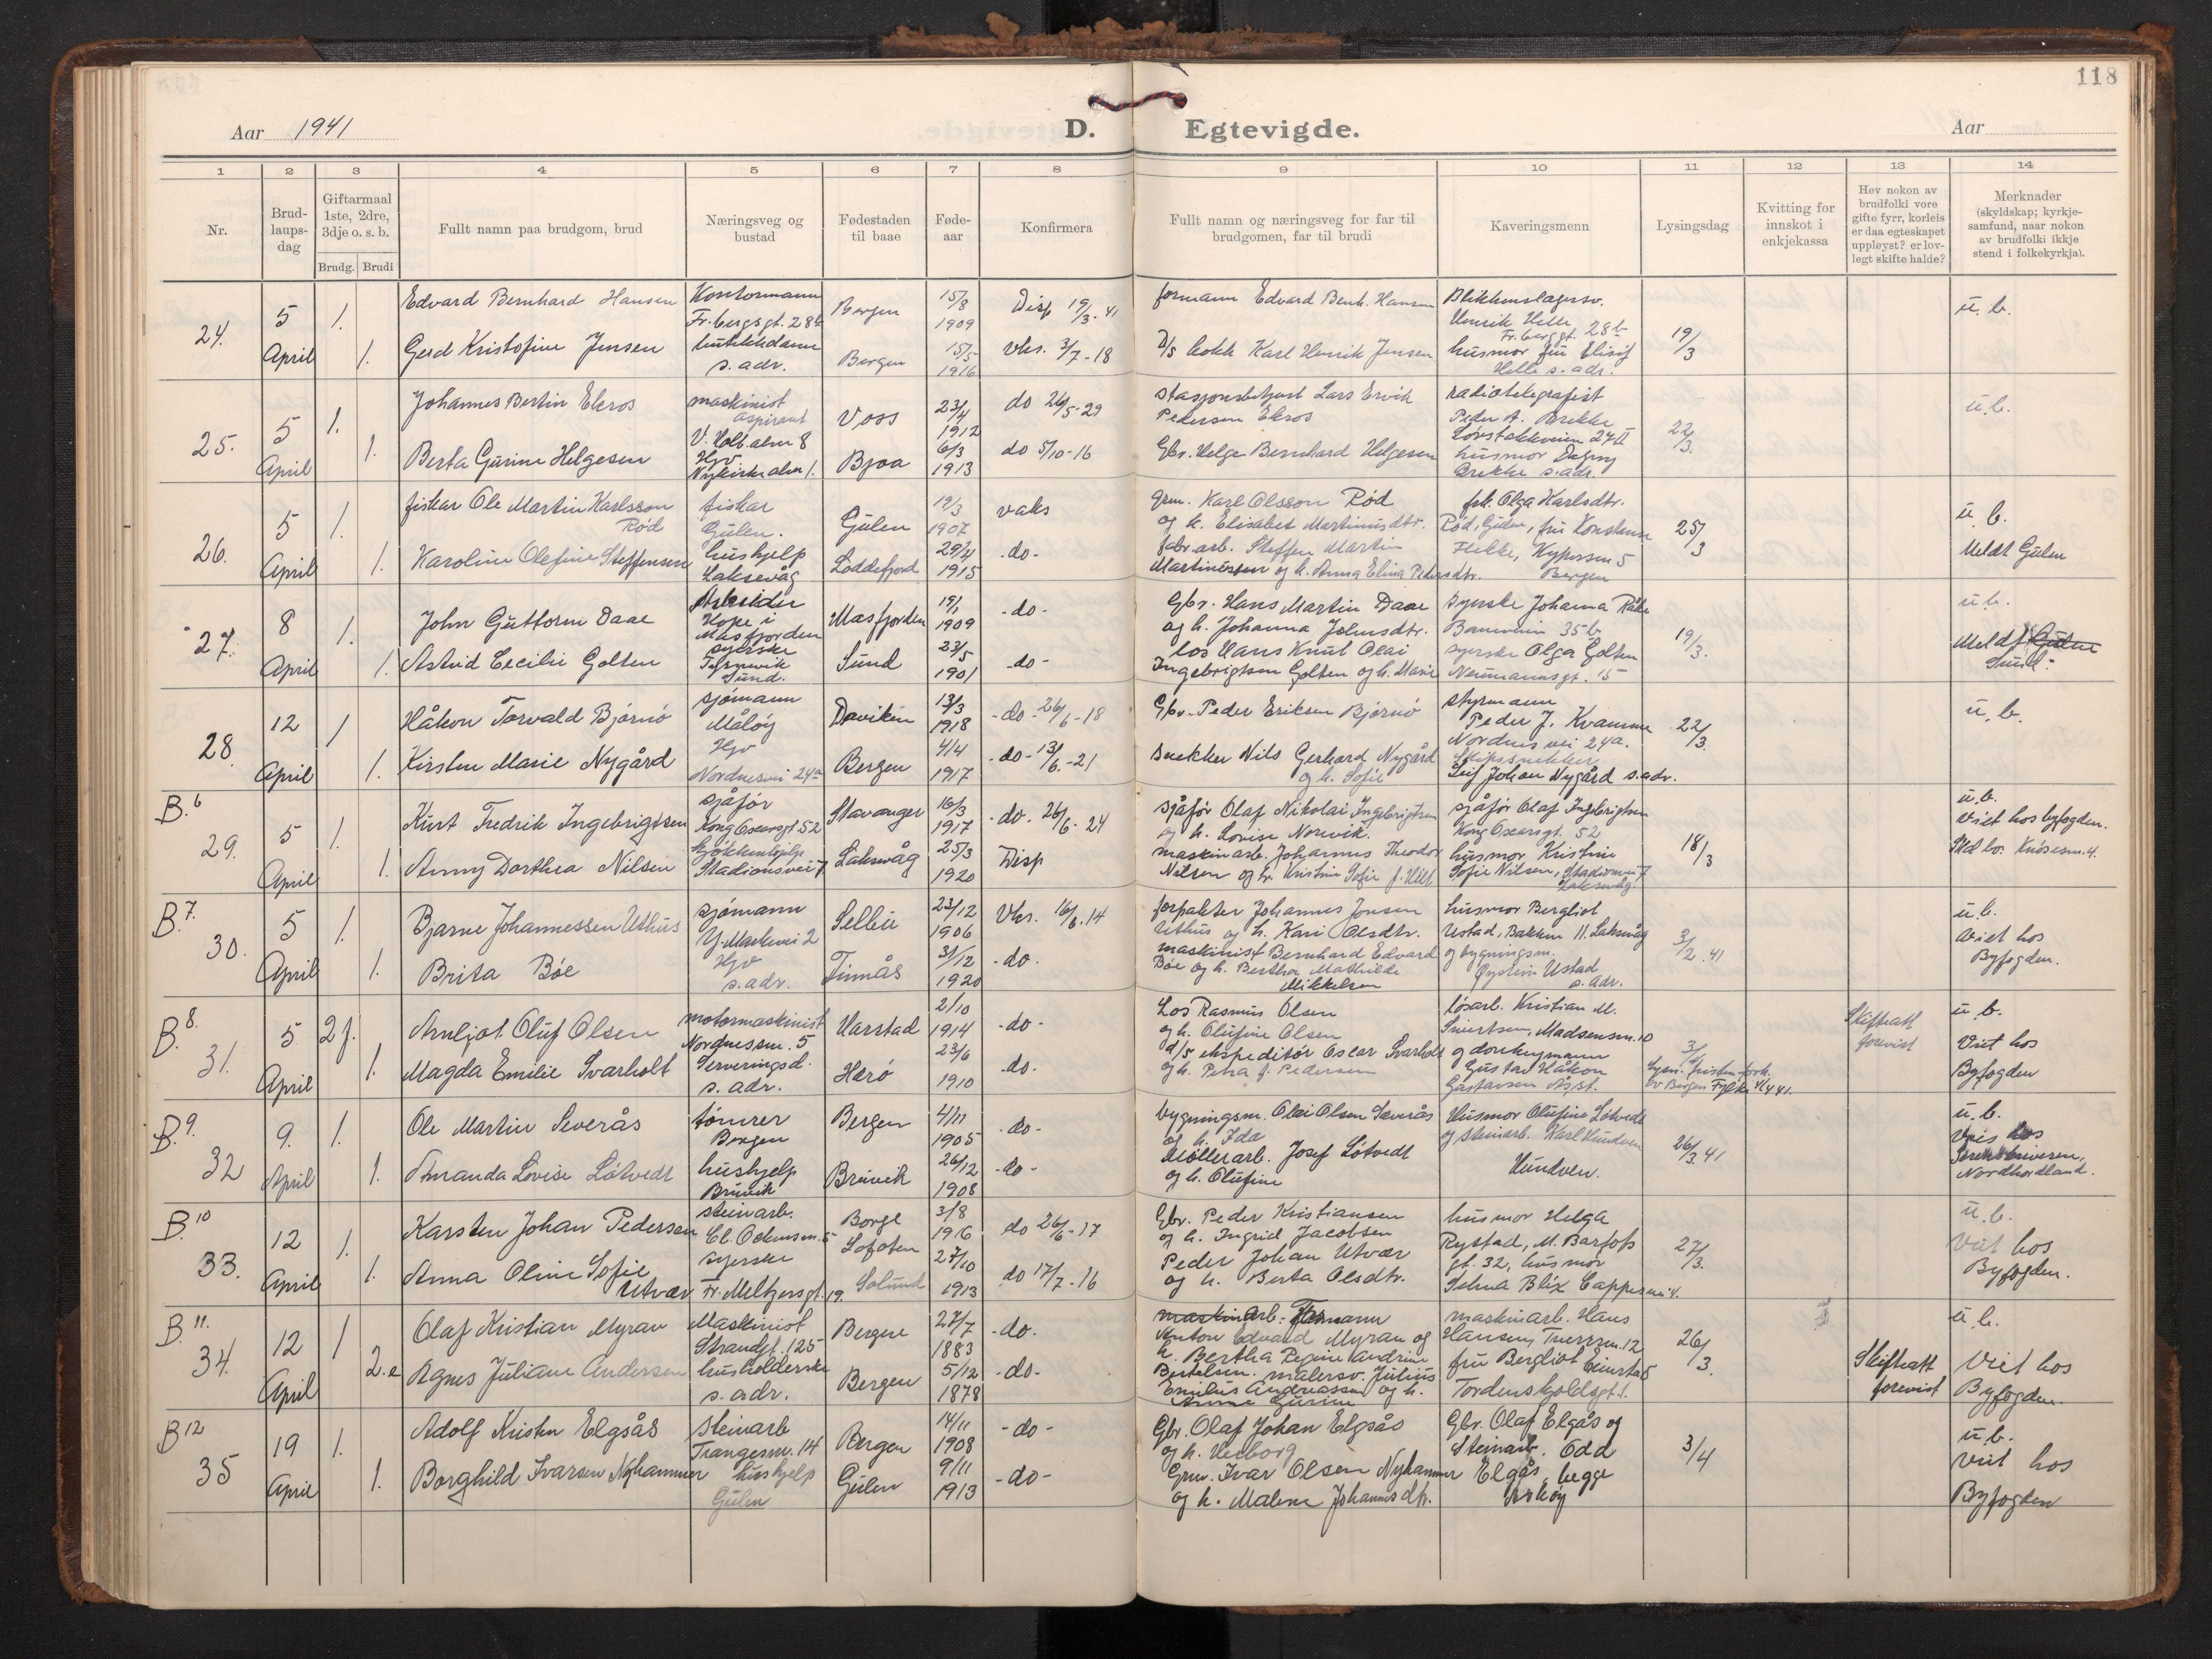 118
Aar 1941
D. Egtevigde.
Aar
1 2 3 4 5 6 7 8 9 10 11 12 13 14
Nr.
Brud-
laups-
dag
Giftarmaal
1ste, 2dre,
3dje o. s. b.
Brudg. Brudi
Fullt namn paa brudgom, brud
Næringsveg og
bustad
Fødestaden
til baae
Føde-
aar
Konfirmera
Fullt namn og næringsveg for far til
brudgomen, far til brudi
Kaveringsmenn
Lysingsdag
Kvitting for
innskot i
enkjekassa
Hev nokon av
brudfolki vore
gifte fyrr, korleis
er daa egteskapet
uppløyst? er lov-
legt skifte halde?
Merknader
(skyldskap; kyrkje-
samfund, naar nokon
av brudfolki ikkje
stend i folkekyrkja).
24.
5 April
1.
1.
Edvard Bernhard Hansen
Gerd Kristofine Jensen
Kontormann
Fr. bergsgt. 28b
s. adr.
Bergen
Bergen
15/8 1909
15/5 1916
Disp 19/3-41
vks. 3/7-18
formann Edvard Bernh. Hansen
D/s kokk Karl Henrik Jensen
Blikkenslagersv.
Henrik Helle
Fr. berggt. 28b
husmor fru Elisif
Helle s. adr.
19/3
u. b.
25.
5 April
1.
1.
Johannes Bertin Ekros
Berta Gurine Helgesen
maskinist
aspirant
V. Holb. alm 8
Hjv
Nykirkealm 1.
Voss
Bjoa
23/4 1912
6/3 1913
do 26/5-29
do 5/10-16
stasjonsbetjent Lars Ervik
Pedersen Ekros
Gbr. Helge Bernhard Helgesen
radiotelegrafist
Peder A. Brekke
Løvstakkveien 27 II
husmor Dagny
Brekke s. adr.
22/3.
u. b.
26.
5 April
1.
1.
fiskar Ole Martin Karlsson
Rød
Karoline Olefine Steffensen
fiskar
Gulen.
hushjelp
Laksevåg
Gulen
Loddefjord
19/3 1907
29/4 1915
vaks
-do-
grm. Karl Olsson Rød
og h. Elisabet Martinusdtr.
fabr. arb. Steffen Martin
Martinussen og h. Anna Elina Pedersdtr.
frk. Olga Karlsdtr.
Rød, Gulen, fru Konstanse
Flekke,
Bergen
25/3
u. b.
Meldt Gulen
27.
8 April
1.
1.
John Guttorm Daae
Astrid Cecilie Golten
Arbeider
Hope i
Masfjorden
syerske
Sund.
Masfjorden
Sund
19/1 1909
23/5 1901
-do-
-do-
Gbr. Hans Martin Daae
og h. Johanna Johnsdtr.
los Hans Knut Olai
Ingebrigtsen Golten og h. Marie
syerske Johanna
35b
syerske Olga Golten
Neumannsgt. 15
19/3.
u. b.
Meldt Gulen
Sund.
28.
12 April
1
1.
Håkon Torvald Bjørnø
Kirsten Marie Nygård
sjømann
Måløy
Hjv
Nordnesvei 24a
Daviken
Bergen
13/3 1918
4/4 1917
-do- 26/6-18
-do- 13/6.-21
Gbr. Peder Eriksen Bjørnø
snekker Nils Gerhard Nygård
og h. Sofie
styrmann
Peder J. Kvamme
Nordnesvei 24a.
Skipssnekker
Leif Johan Nygård s. adr.
22/3
u. b.
B. 6
29.
5 April
1.
1.
Kurt Fredrik Ingebrigtsen
Anny Dorthea Nilsen
sjåfør
Kong Oscarsgt. 52
kjøkkenhjelp
Stadionsvei 7
Stavanger
Laksevåg
16/3 1917
25/3 1920
-do. 26/6-24
Disp
sjåfør Olaf Nikolai Ingebrigtsen
og h. Lovise Norevik.
maskinarb. Johannes Theodor
Nilsen og h. Kristine Sofie f.
sjåfør Olaf Ingebrigtsen
Kong Oscarsgt. 52
husmor Kristine
Sofie Nilsen, Stadionvei 7
Laksevåg
18/3
u. b.
Viet hos byfogden.
B. 7.
30.
5 April
1.
1.
Bjarne Johannessen Uthus
Brita Bøe
sjømann
2
Hjv
s. adr.
Selbu
Finnås
23/12 1906
31/12 1920
Vks. 16/6.14
-do.
forpakter Johannes Jonsen
Uthus og h. Kari Olsdtr.
maskinist Bernhard Edvard
Bøe og h. Bertha Mathilde
Mikkelsen
husmor Bergliot
Ustad, Bakken 11. Laksevåg
og bygningsm.
Øystein Ustad
s. adr.
3/2.41
u. b.
Viet hos
Byfogden.
B. 8.
31.
5 April
2 f.
1.
Arnljot Oluf Olsen
Magda Emilie Svarholt
motormaskinist
Nordnessm. 5
Serveringsd.
s. adr.
Harstad
Herø
2/10 1914
23/6 1910
-do-
-do.
Los Rasmus Olsen
og h. Olufine Olsen
d/s ekspeditør Oscar Svarholt
og h. Petra f. Pedersen
løsarb. Kristian M.
Sivertsen, Madsensm. 10
og donkeymann
Gustav Håkon
Gustavsen
av Bergen Fylke
Skifteatt
forevist
u. b.
Viet hos
Byfogden
B. 9.
32
9. April
1.
1.
Ole Martin Severås
Amanda Lovise Låtvedt
tømrer
Bergen
hushjelp
Bruvik
Bergen
Bruvik
4/11 1905
26/12 1908
-do-
-do-
bygningsm. Olai Olsen Severås
og h. Ida
Møllerarb. Josef Låtvedt
og h. Olufine
Husmor Olufine Låtvedt
og steinarb. Karl Hundven
Hundven.
26/3.41
u. b.
hos
Sorenskriveren,
Nordhordland.
B. 10
33.
12 April
1.
1.
Karsten Johan Pedersen
Anna Oline Sofie
Utvær
steinarb.
syerske
Fr. Meltzersgt. 19.
Borge
Lofoten
Solund
3/8 1916
27/10 1913
do 26/6-17
do 17/7-16
Gbr. Peder Kristiansen
og h. Ingrid Jacobsen
Peder Johan Utvær
og h. Berta Olsdtr.
husmor Helga
Rystad, M. Barfots
gt. 32, husmor
Selma Blix
27/3.
u. b.
Viet hos
Byfogden.
B. 11.
34.
12 April
1
2. e
Olaf Kristian Myran
Agnes Juliane Andersen
Maskinist
Strandgt. 125
husholderske
s. adr.
Bergen
Bergen
27/7 1883
5/12 1878
-do.
-do-
maskinarb. Formann
Anton Edvard Myran og
h. Bertha Regine Andrine
Bertelsen. malersv. Julius
Emilius Andreassen og h.
Anne Gurine
maskinarb. Hans
Hansen, 12
fru Bergliot Einstad
Tordenskjoldsgt. 1.
26/3.
Skifteatt
forevist
u. b.
Viet hos
Byfogden.
B 12
35
19 April
1.
1.
Adolf Kristen Elgsås
Borghild Ivarsen Nyhammer
steinarb
Trangesm. 14
hushjelp
Gulen
Bergen
Gulen
14/11 1908
9/11 1913
-do-
-do-
Gbr. Olaf Johan Elgsås
og h. Herborg
Grm. Ivar Olsen Nyhammer
og h. Malene Johannesdtr.
Gbr. Olaf Elgås og
Steinarb. Odd
Elgås, begge
Askøy
3/4
u. b.
viet hos
Byfogden